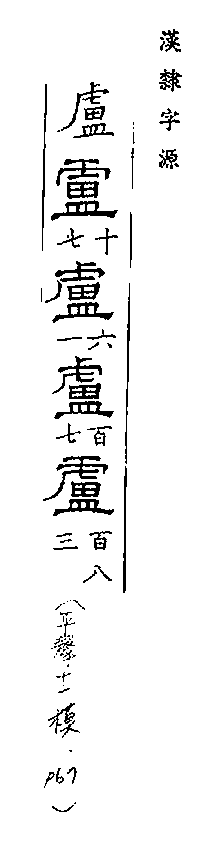 漢隸字源
盧 盧十七 盧六一 盧百七 盧百八三
（平聲．十一模．p67）